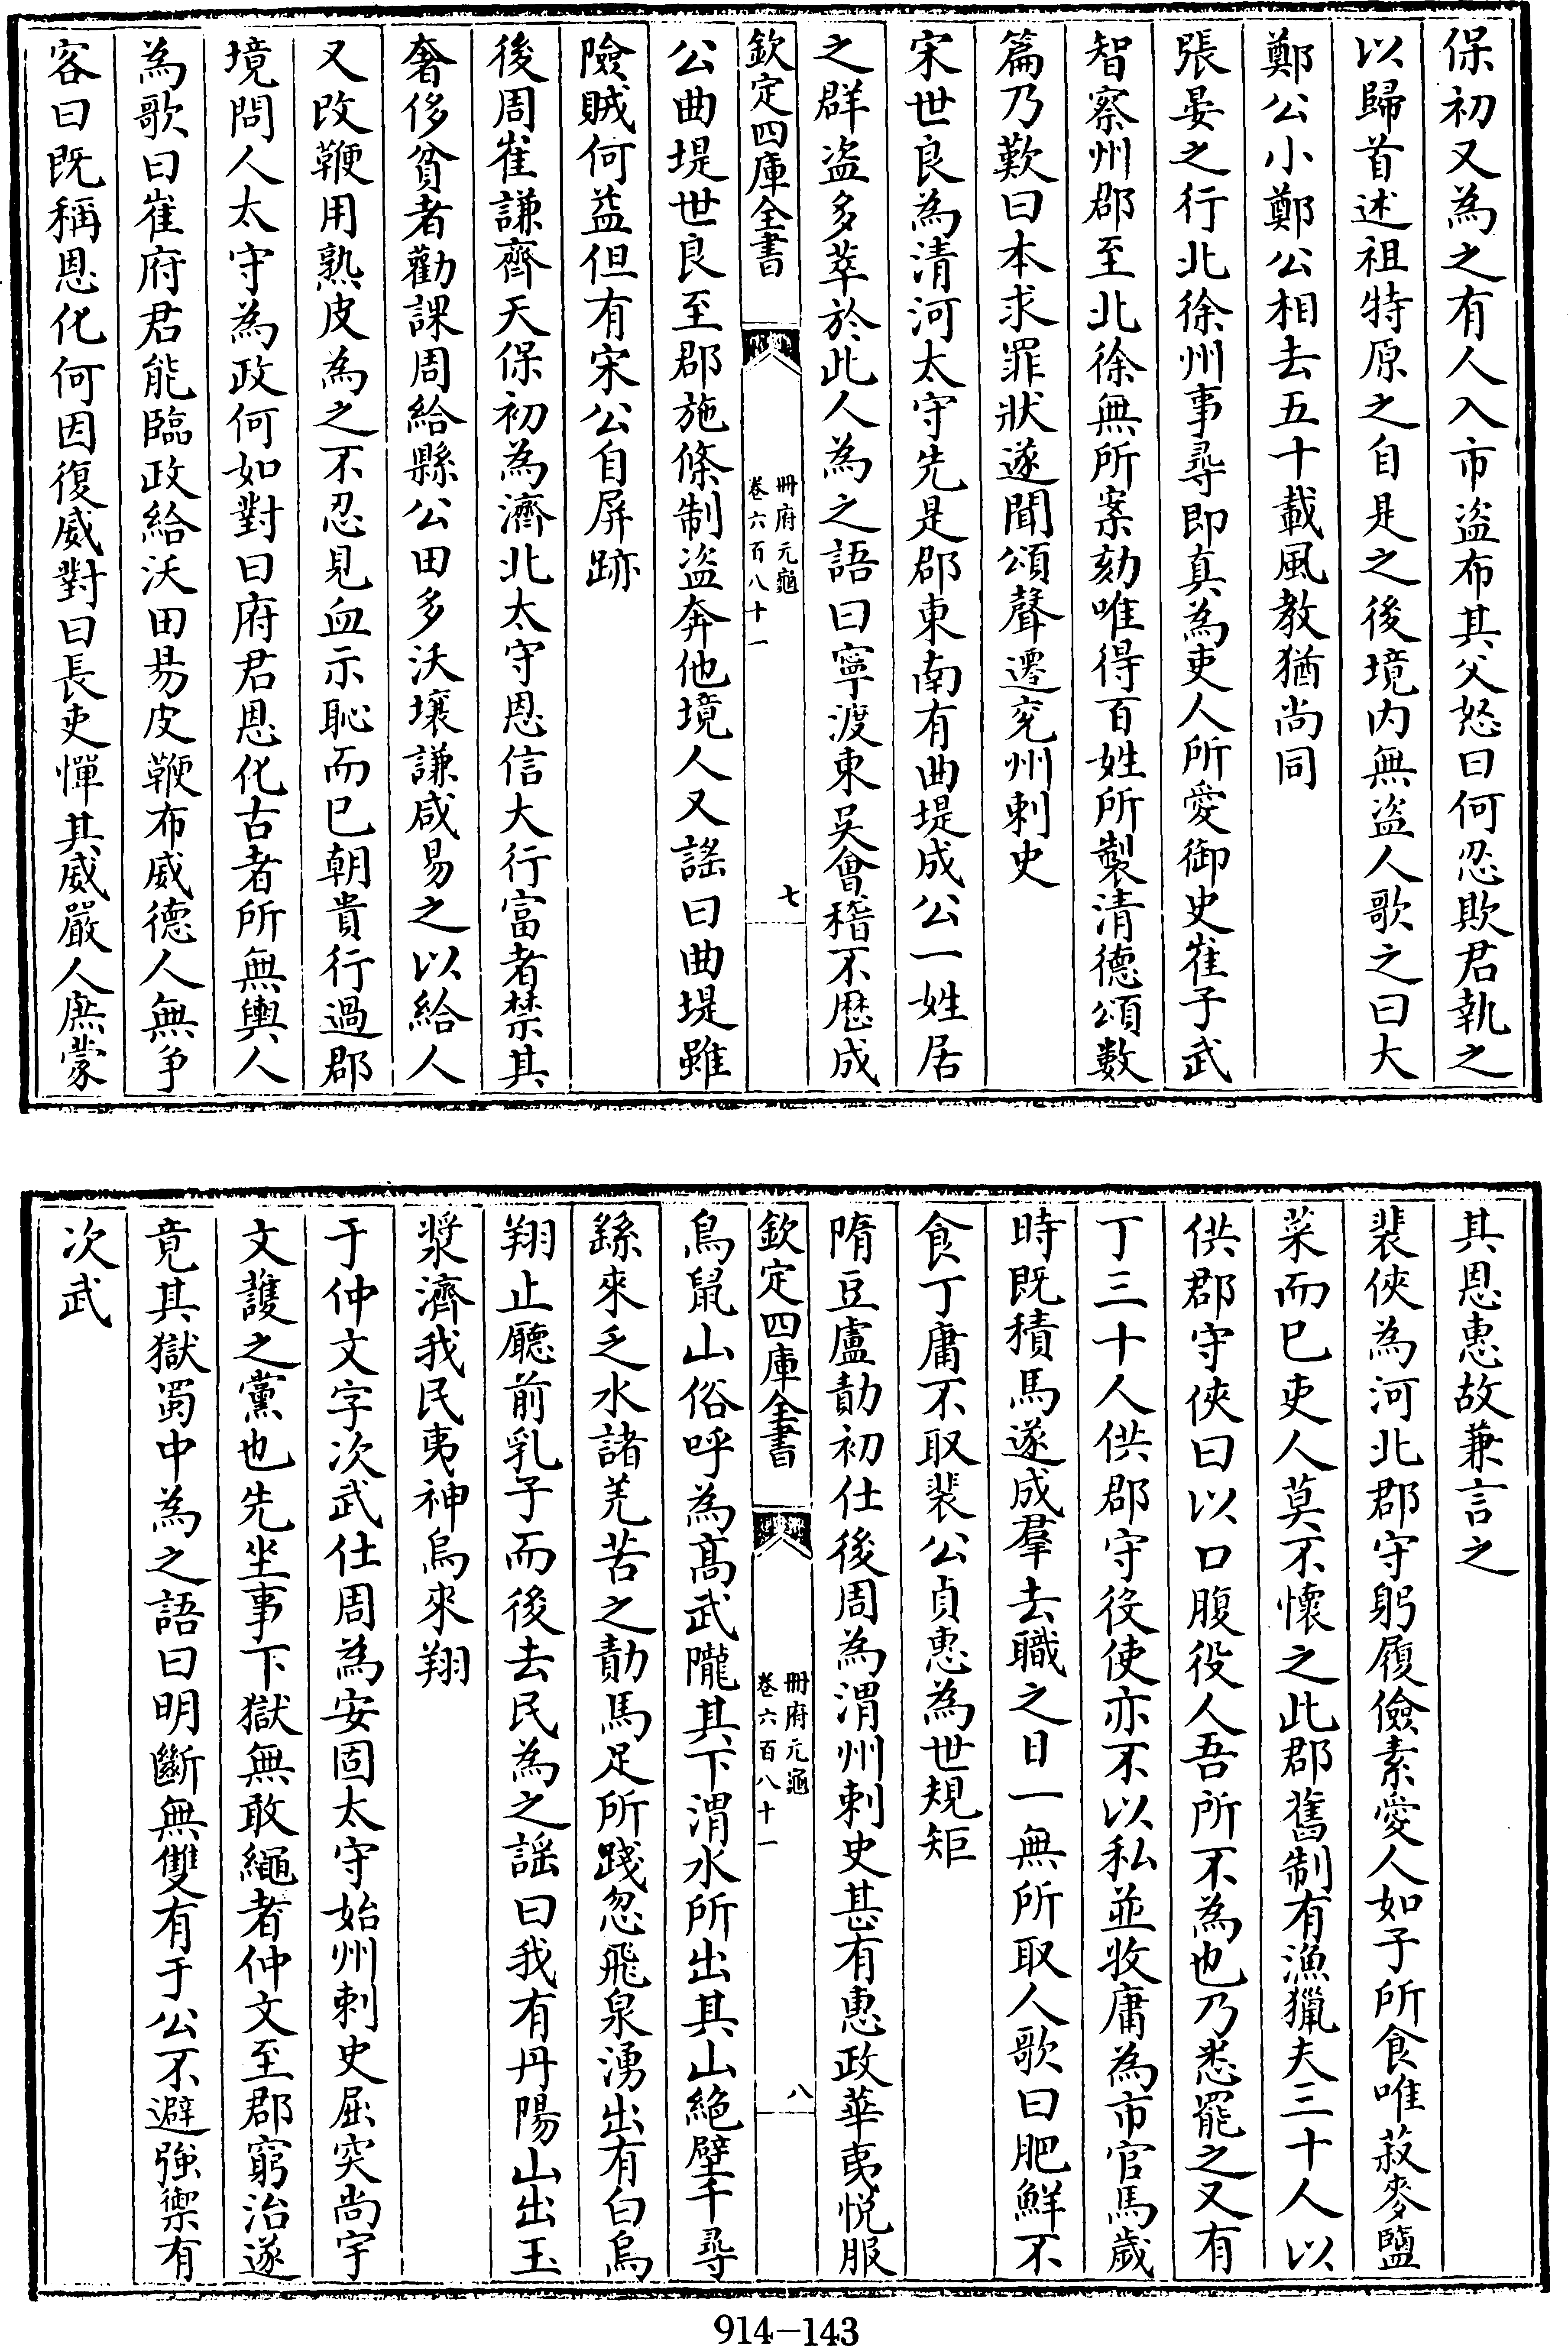 保初又為之有人入市盜布其父怒曰何忍欺君執之
以歸首述祖特原之自是之後境内無盜人歌之曰大
鄭公小鄭公相去五十載風教猶尚同
張晏之行北徐州事尋即真為吏人所愛御史崔子武
智察州郡至北徐無所案劾唯得百姓所製清德頌數
篇乃歎曰本求罪狀遂聞頌聲遷兖州刺史
宋世良為清河太守先是郡東南有曲堤成公一姓居
之群盜多萃於此人為之語曰寧渡東吳會稽不歷成
欽定四庫全書
冊府元龜
卷六百八十一
七
公曲堤世良至郡施條制盜奔他境人又謠曰曲堤雖
險賊何益但有宋公自屏跡
後周崔謙齊天保初為濟北太守恩信大行富者禁其
奢侈貧者勸課周給縣公田多沃壤謙咸易之以給人
又改鞭用熟皮為之不忍見血示恥而已朝貴行過郡
境問人太守為政何如對曰府君恩化古者所無輿人
為歌曰崔府君能臨政給沃田易皮鞭布威德人無爭
客曰既稱恩化何因復威對曰長吏憚其威嚴人庶蒙
其恩惠故兼言之
裴俠為河北郡守躬履儉素愛人如子所食唯菽麥鹽
菜而已吏人莫不懷之此郡舊制有漁獵夫三十人以
供郡守俠曰以口腹役人吾所不為也乃悉罷之又有
丁三十人供郡守役使亦不以私並收庸為市官馬歲
時既積馬遂成羣去職之日一無所取人歌曰肥鮮不
食丁庸不取裴公貞惠為世規矩
隋豆盧勣初仕後周為渭州刺史甚有惠政華夷悅服
欽定四庫全書
冊府元龜
卷六百八十一
八
鳥鼠山俗呼為高武隴其下渭水所出其山絶壁千尋
繇來乏水諸羌苦之勣馬足所踐忽飛泉湧出有白烏
翔止廳前乳子而後去民為之謠曰我有丹陽山出玉
漿濟我民夷神烏來翔
于仲文字次武仕周為安固太守始州刺史屈突尚宇
文護之黨也先坐事下獄無敢繩者仲文至郡窮治遂
竟其獄蜀中為之語曰明斷無雙有于公不避強禦有
次武
914-143